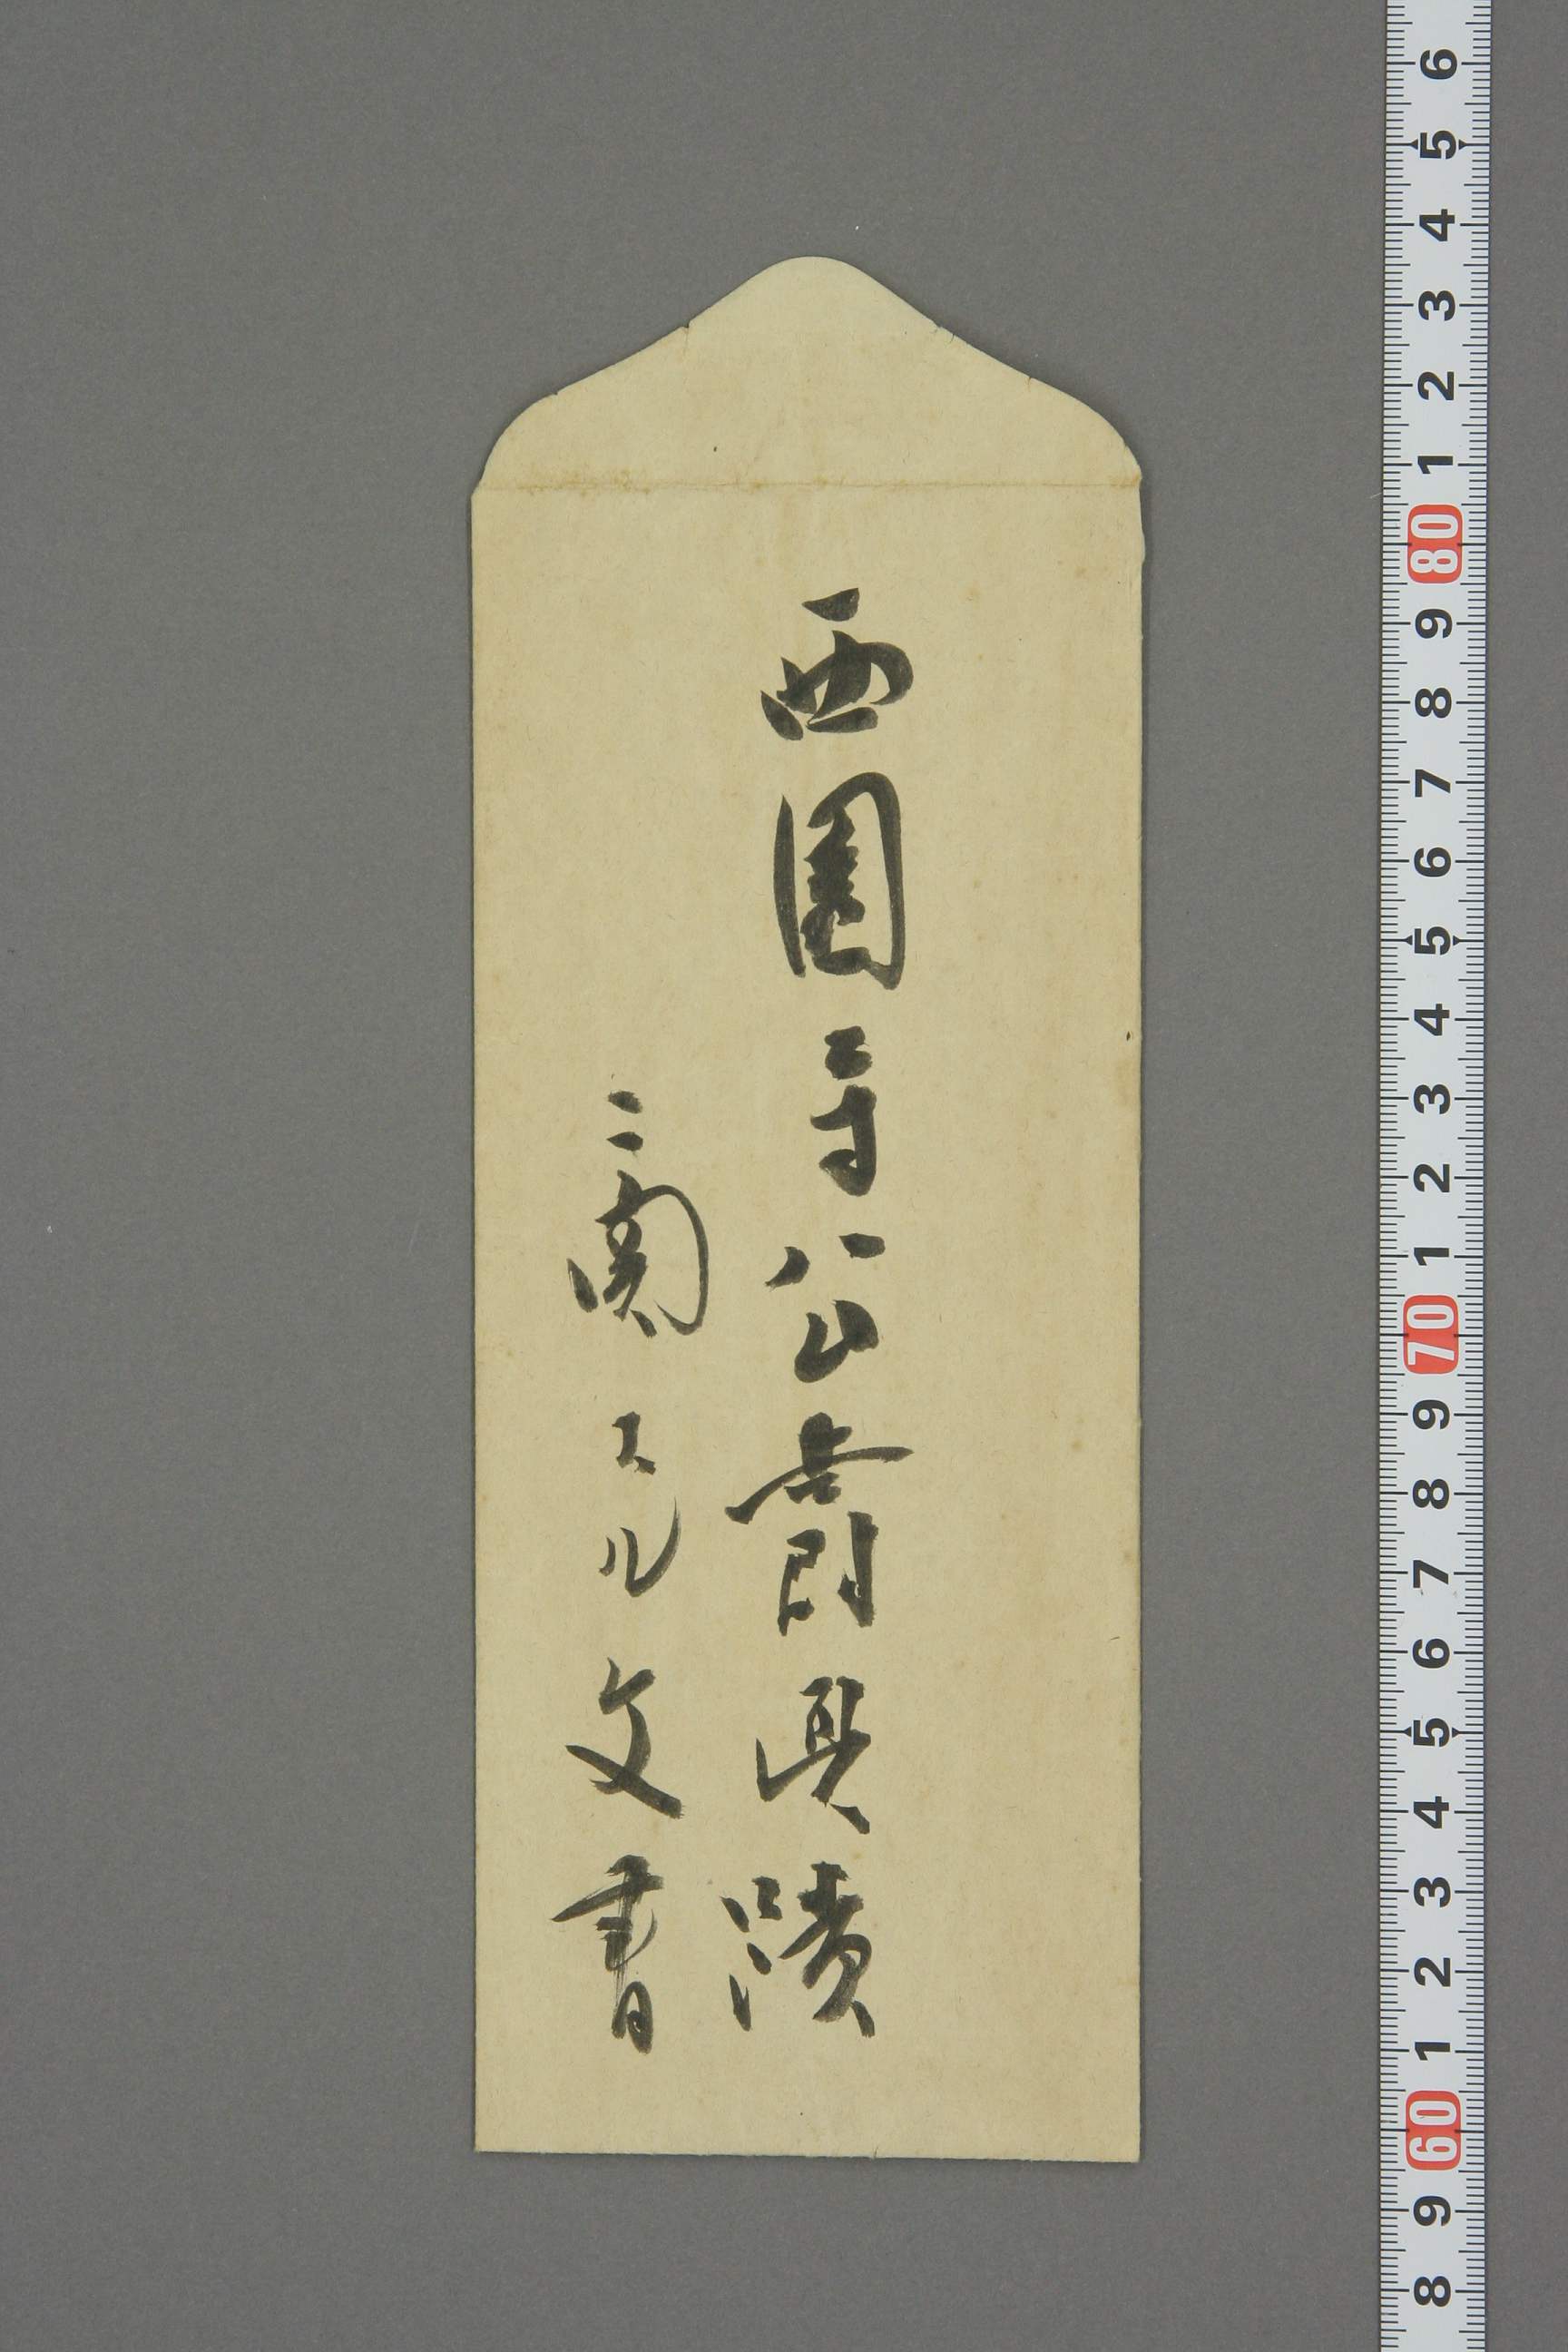 西園寺公爵眞蹟
ニ関スル文書
8 9 60 1 2 3 4 5 6 7 8 9 70 1 2 3 4 5 6 7 8 9 80 1 2 3 4 5 6